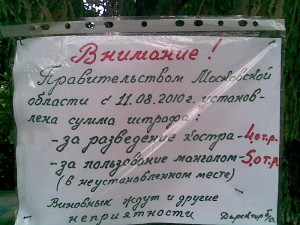 Внимание!
Правительством Московской
области с 11.08.2010г. установ-
лена сумма штрафа:
- за разведение костра - 4,0т.р.
- за пользование мангалом - 5,0т.р.
(в неустановленном месте)
Виновных ждут и другие
неприятности Директор б/о.